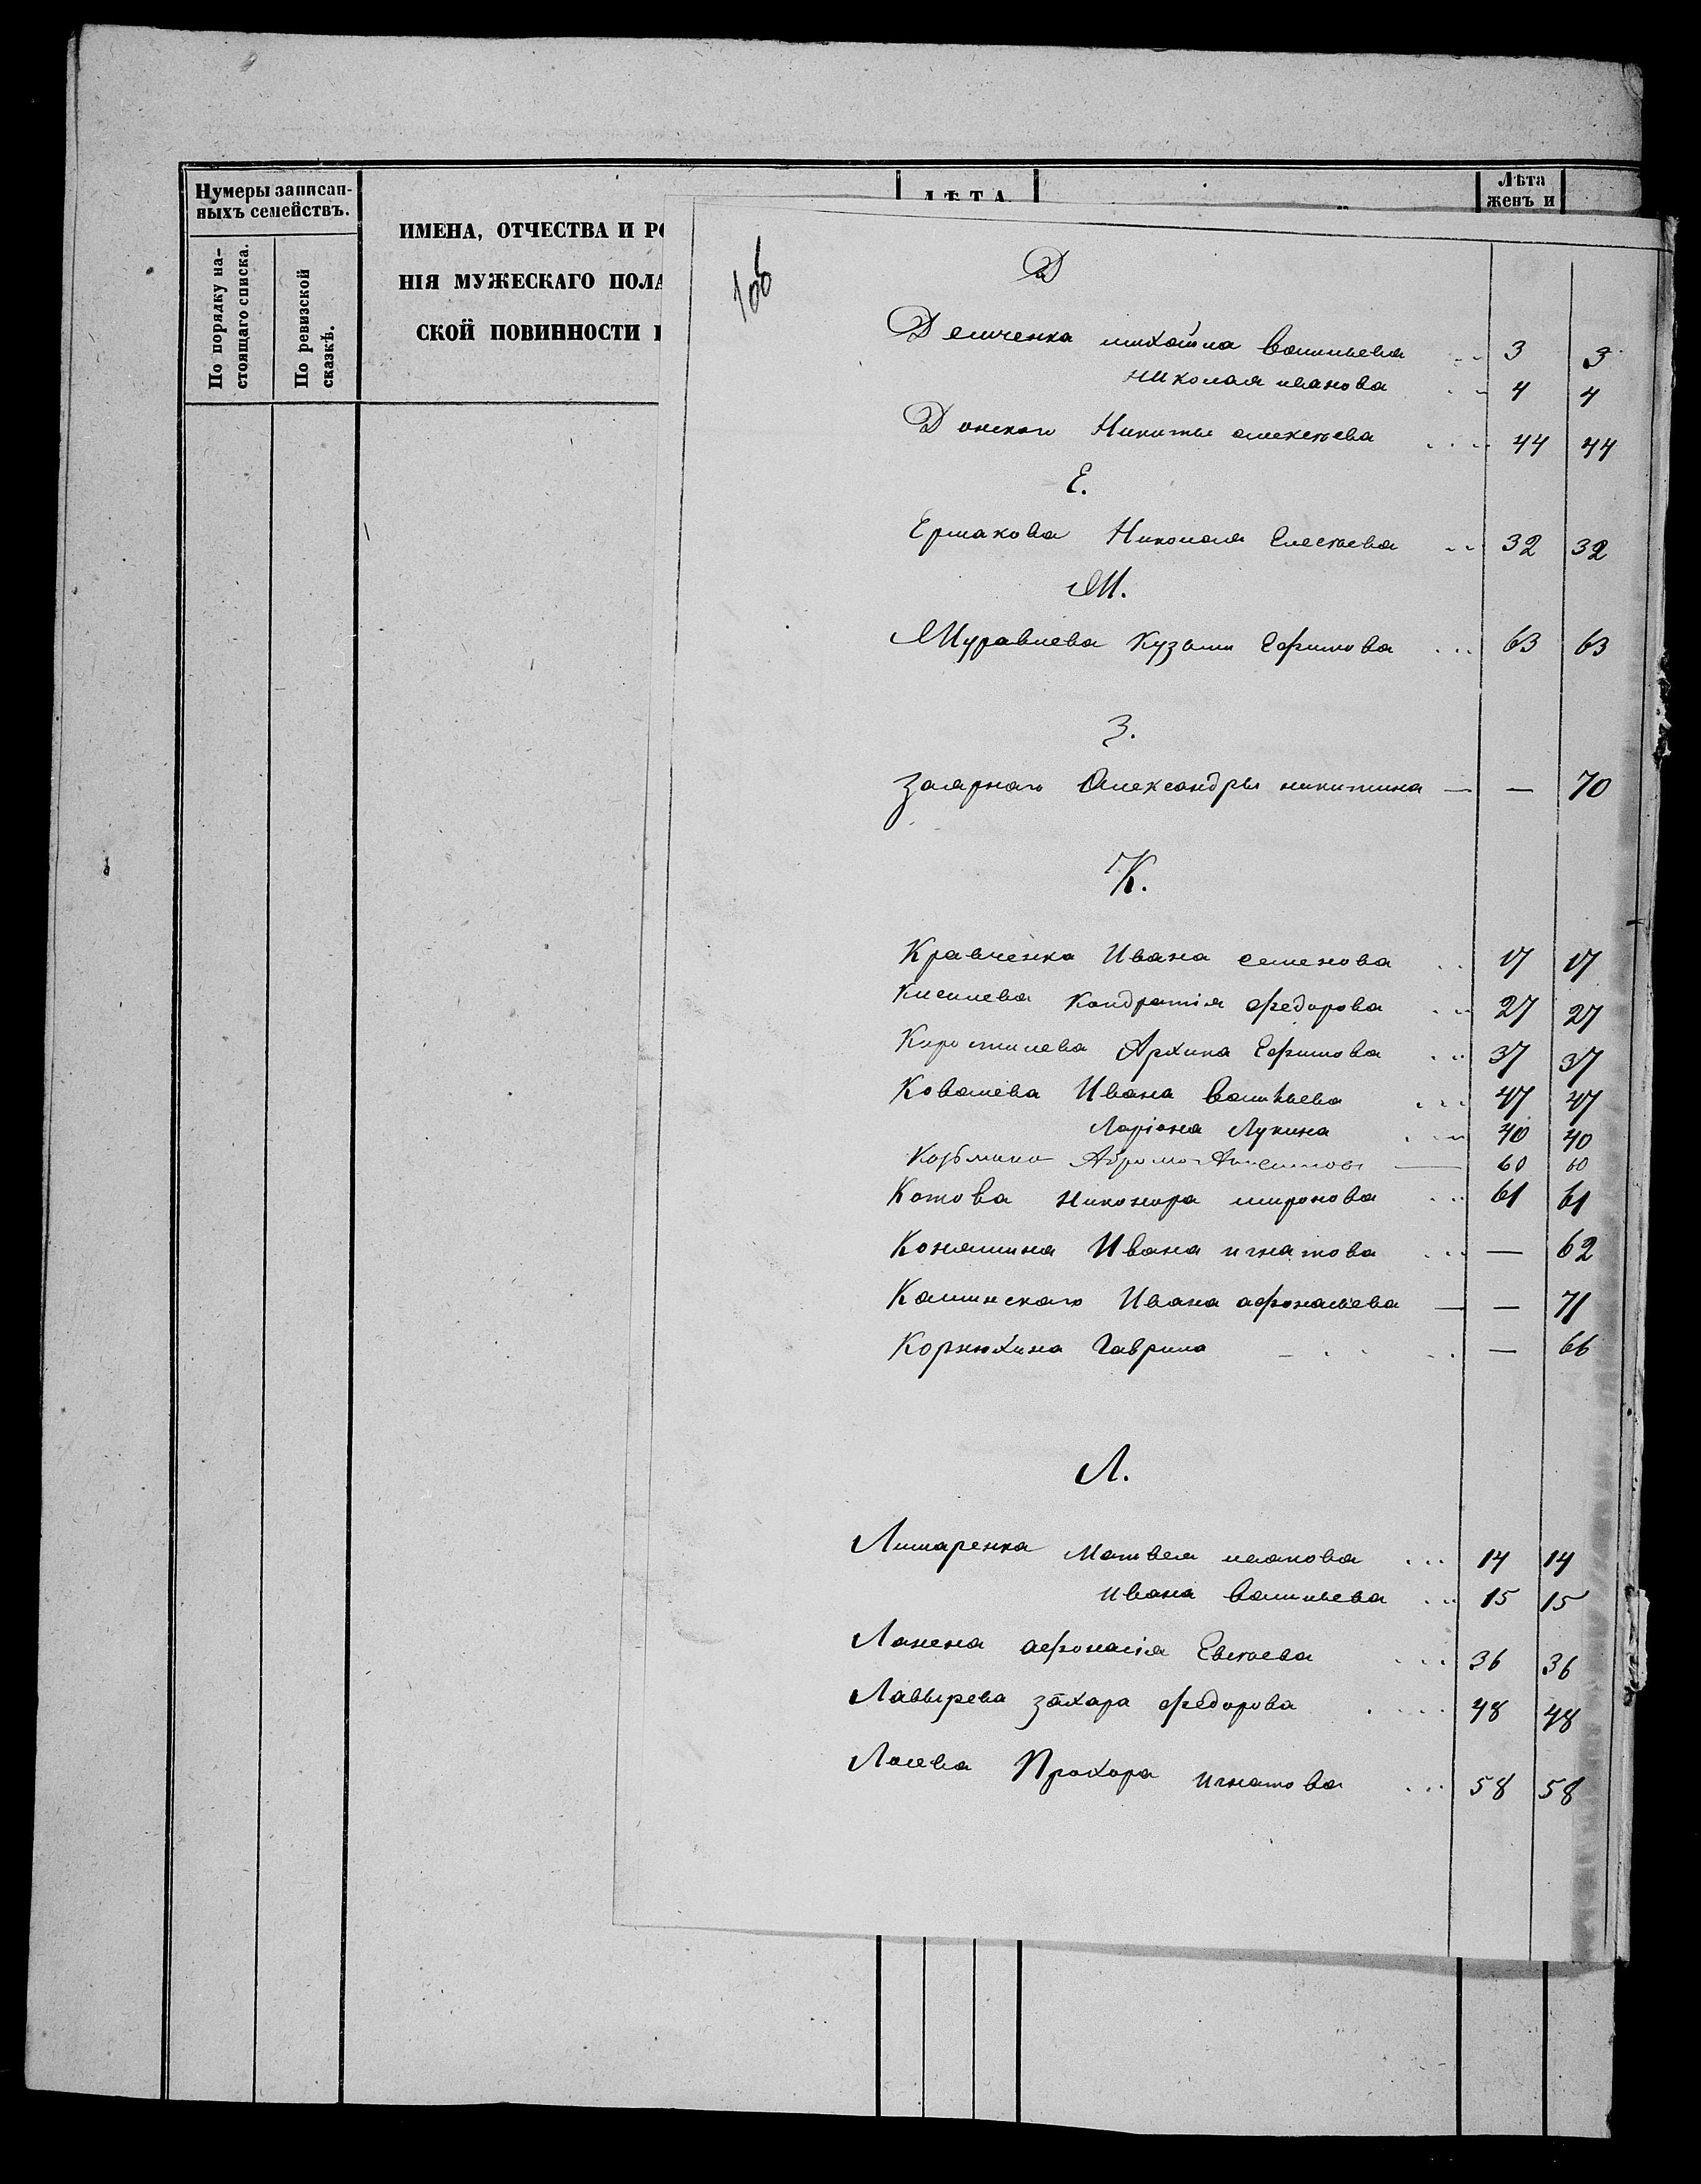 Нумеры записан-
ныхъ семействъ.
По порядку на-
стоящаго списка.
По ревизской
сказкѣ.
ИМЕНА, ОТЧЕСТВА И
НІЯ МУЖЕСКАГО ПОЛА
СКОЙ ПОВИННОСТИ
ЛѢТА
Лѣта
женъ и
106
Д
Демченка михайла васильева 3 3
николая иванова 4 4
Донскаго Никиты алексѣева 44 44
Е.
Ермакова Николая Елесѣева 32 32
М.
Муравлева Кузьмы Ефимова 63 63
З.
Заярнаго Александры никитина — — 70
К.
Кравченка Ивана семенова 17 17
Киселева Кондратія федорова 27 27
Коростилева Архипа Ефимова 37 37
Ковалева Ивана васильева 47 47
Ларіона Лукина 40 40
Козьмина Абрама 60 60
Котова Никонора миронова 61 61
Конямина Ивана игнатова — 62
Калинскаго Ивана афонасьева — — 71
Корнюхина Гаврила — 66
Л.
Лимаренка Матвея иванова 14 14
ивана васильева 15 15
Ланена афонасія Евсѣева 36 36
Лавырева захара федорова 48 48
Лосева Прохора игнатова 58 58